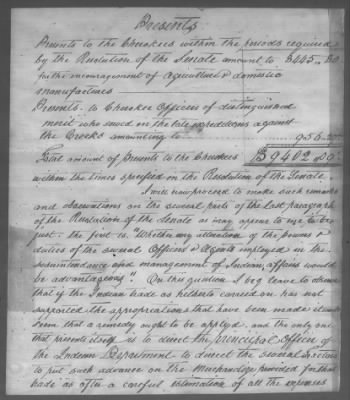 Presents
Presents to the Cherokees within the periods required
by the Resolution of the Senate amount to 8445..80
for the incouragement of agriculture & domestic
manufactures
Presents to Cherokee Officers of distinguished
merit who served in the late expeditions against
the Creeks amounting to 956..
Total amount of Presents to the Cherokees $9402..00
within the times specified in the Resolution of the Senate
I will now proceed to make such remarks
and observations on the several parts of the last paragraph
of the Resolution of the Senate as may appear to me to be
just. the first is "Whether any alteration of the powers &
duties of the several Officers & Agents employed in the
superintendance and management of Indian affairs would
be advantageous". On this question I beg leave to observe
that if the Indian trade as hitherto carried on has not
supported the appropriations that have been made it would
seem that a remedy ought to be applyed, and the only one
that presents itself is to direct the principal Officer of
the Indian Department to direct the several factors
to put such advance on the Merchandize provided for that
trade as after a careful estimation of all the expenses